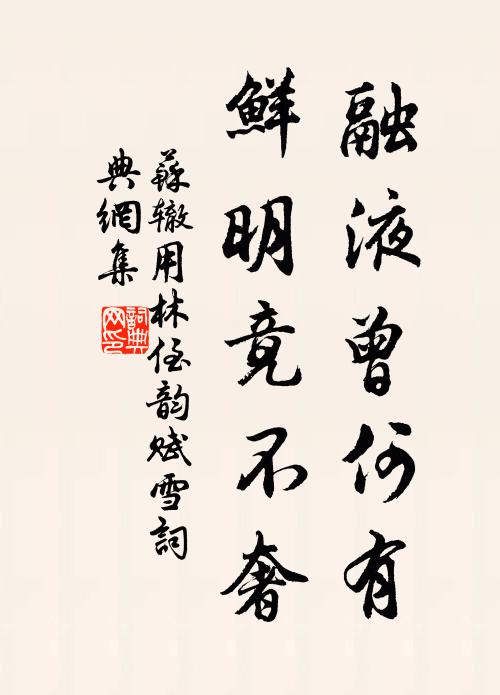 融液曾何有
鮮明竟不奢
蘇轍用林侄韵賦雪詞
典網集
詞典
网印